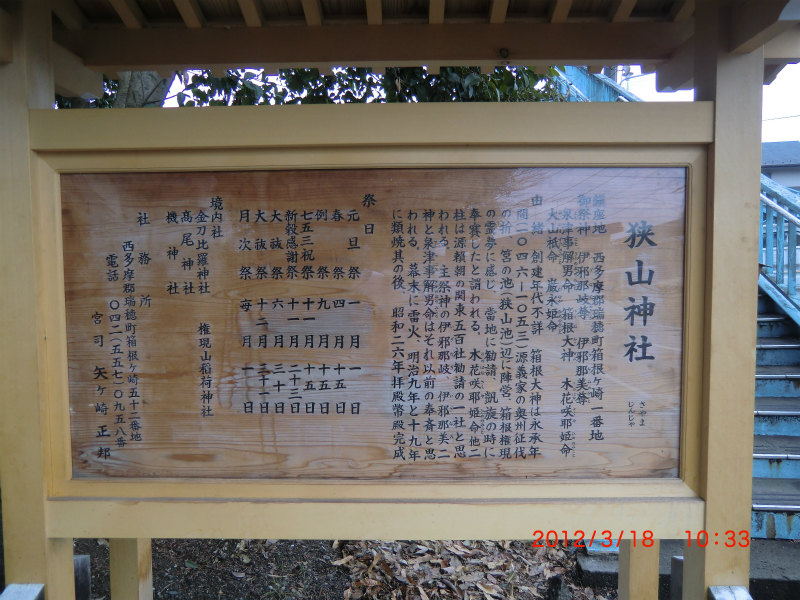 狭山神社
さやま
じんじゃ
鎮座地 西多摩郡瑞穂町箱根ヶ崎一番地
御祭神 伊邪那岐尊 伊邪那美尊
泉津事解男命 箱根大神 木花咲耶姫命
大山祇命 巌永姫命
由緒 創建年代不詳 箱根大神は永承年
間(一〇四六-一〇五三)源義家の奥州征伐
の折、筥の池(狭山池)辺に陣営、箱根権現
の霊夢に感じ、当地に勧請、凱旋の時に
奉賽したと謂われる。木花咲耶姫命他二
柱は源頼朝の関東五百社勧請の一社と思
われる。主祭神の伊邪那岐、伊邪那美二
神と泉津事解男命はそれ以前の奉斎と思
われる。幕末に雷火、明治九年と十九年
に類焼其の後、昭和二六年拝殿幣殿完成
祭日
元旦祭 一月一日
春祭 四月十五日
例祭 九月十五日
七五三祝祭 十一月十五日
新穀感謝祭 十一月二十三日
大祓祭 六月三十日
大祓祭 十二月三十一日
月次祭 毎月一日
境内社
金刀比羅神社 権現山稲荷神社
高尾神社
機神社
社務所
西多摩郡瑞穂町箱根ヶ崎五十二番地
電話 〇四二(五五七)〇九五八番
宮司 矢ヶ崎正邦
2012/3/18 10:33